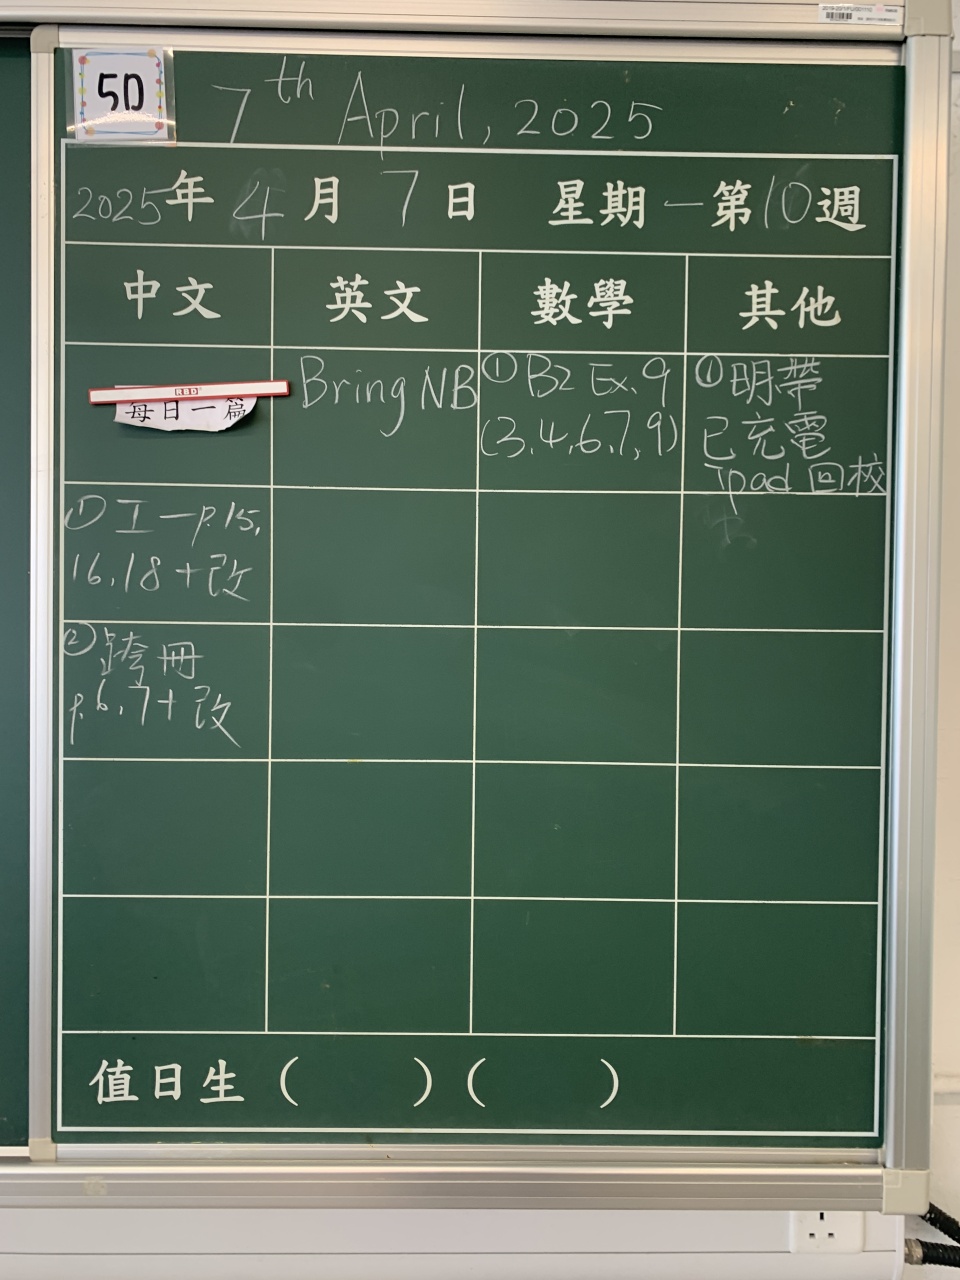 5D
7th April, 2025
2025年 4 月 7 日 星期 一 第10週
中文 英文 數學 其他
每日一篇
RBD
Bring NB
① B2 Ex. 9
(3, 4, 6, 7, 9)
① 明帶
已充電
ipad 回校
① 工一 p.15,
16, 18 + 改
② 跨冊
p.6, 7 + 改
值日生 ( ) ( )